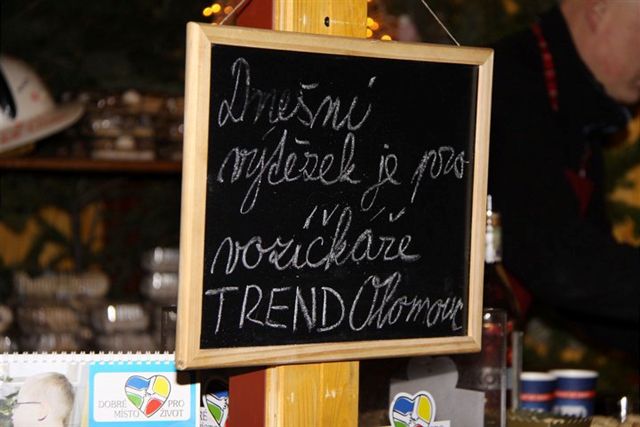 Dnešní
výtěžek je pro
vozíčkáře
TREND Olomouc
DOBRÉ PRO
MÍSTO ŽIVOT